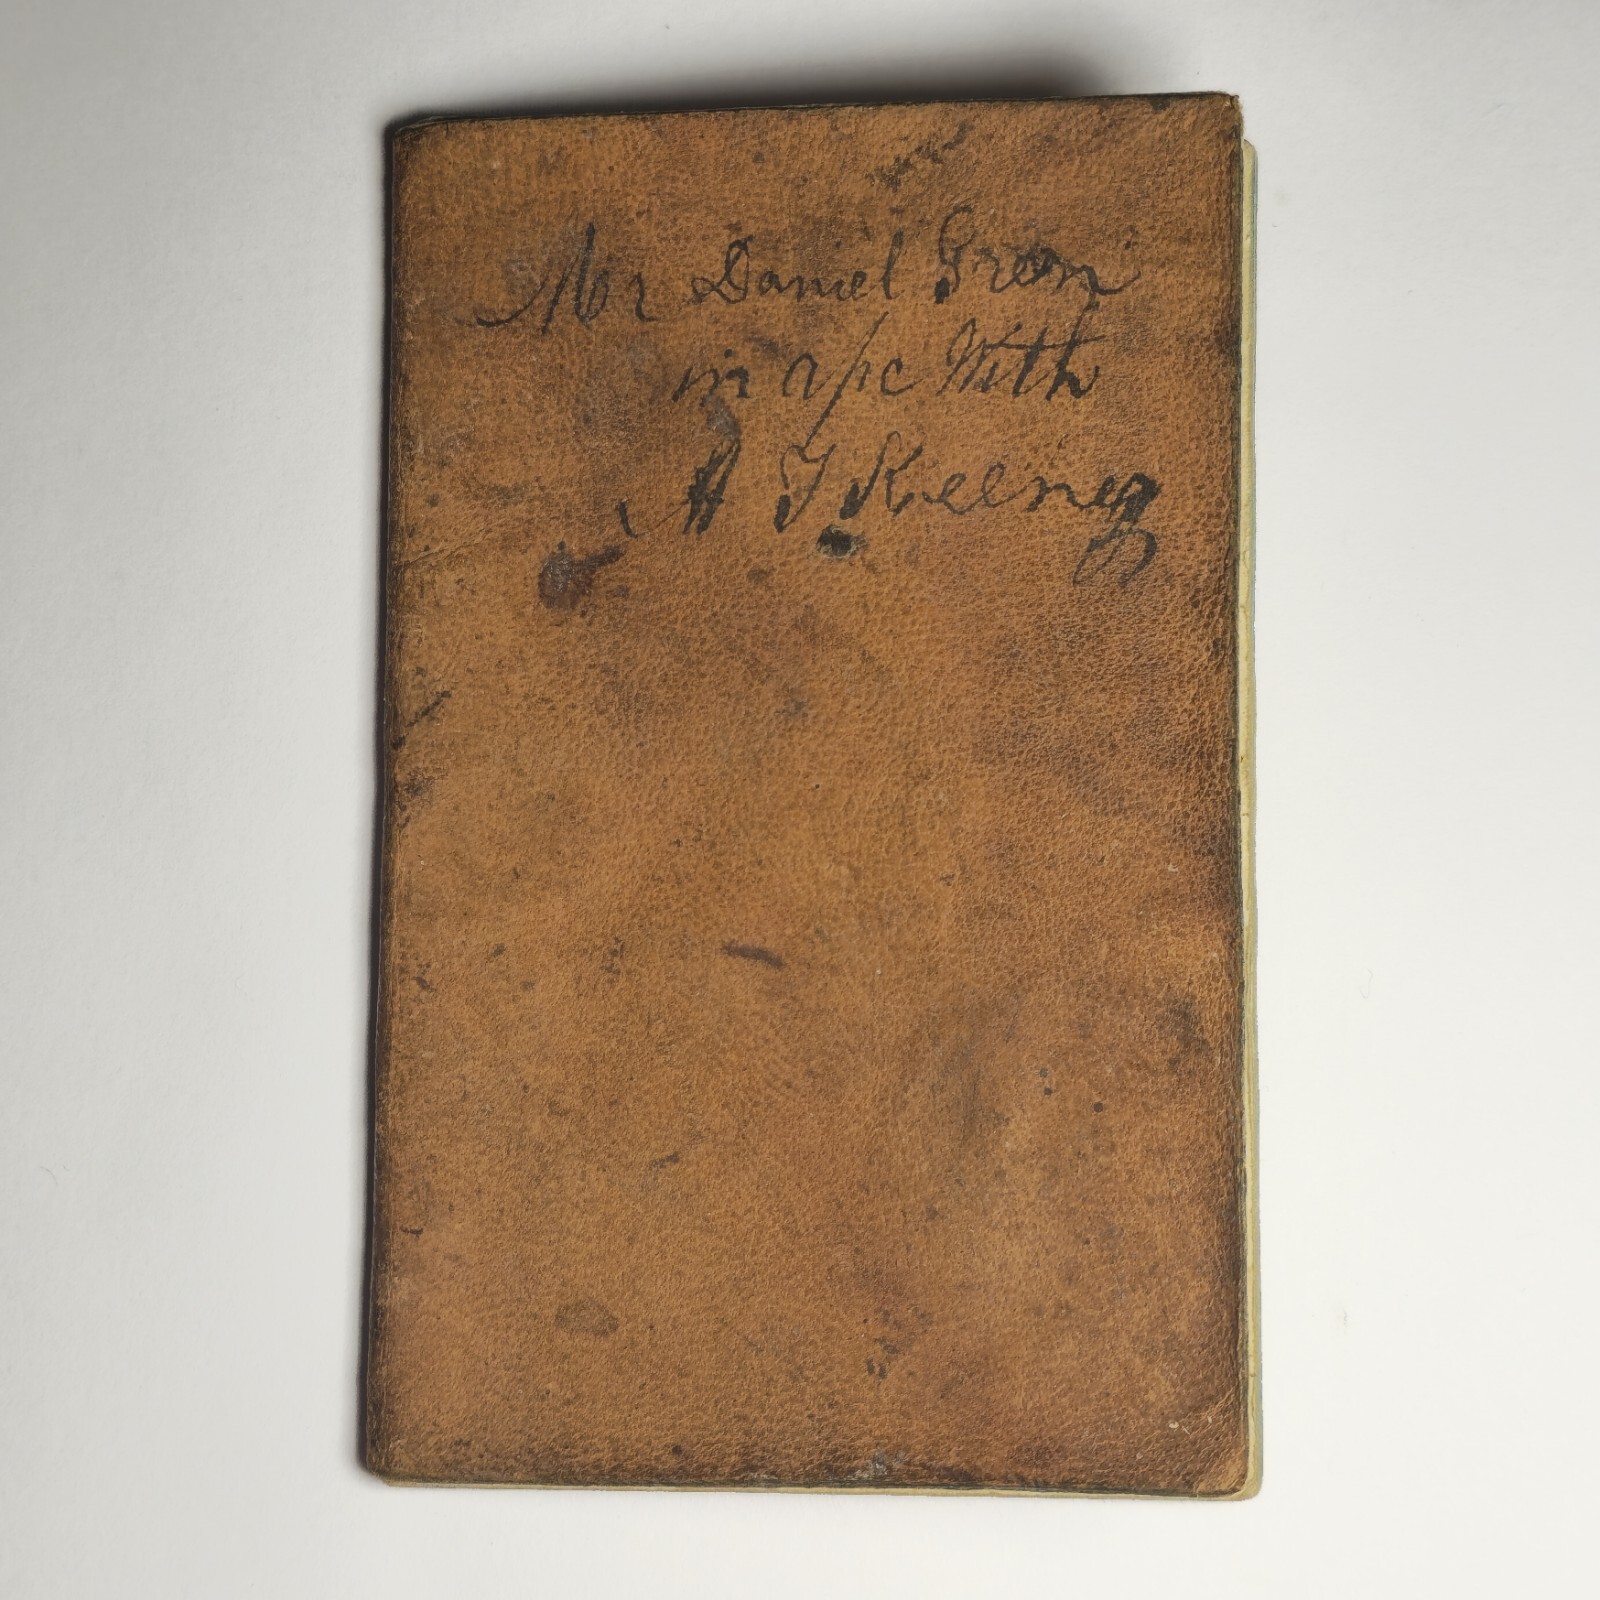 Mr Daniel Green
in a/c With
A F Keeney